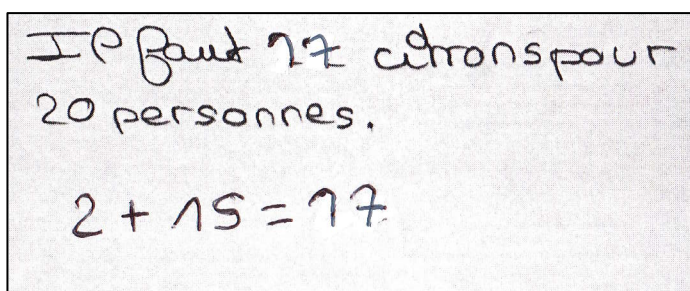 Il faut 17 citrons pour
20 personnes.
2 + 15 = 17